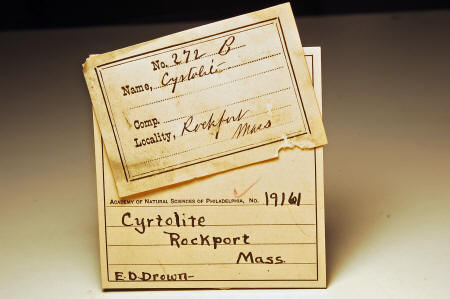 No. 272 B
Name, Cystolite
Comp.
Locality, Rockport
Mass
ACADEMY OF NATURAL SCIENCES OF PHILADELPHIA, NO. 19161
Cyrtolite
Rockport
Mass.
E.D. Drown-